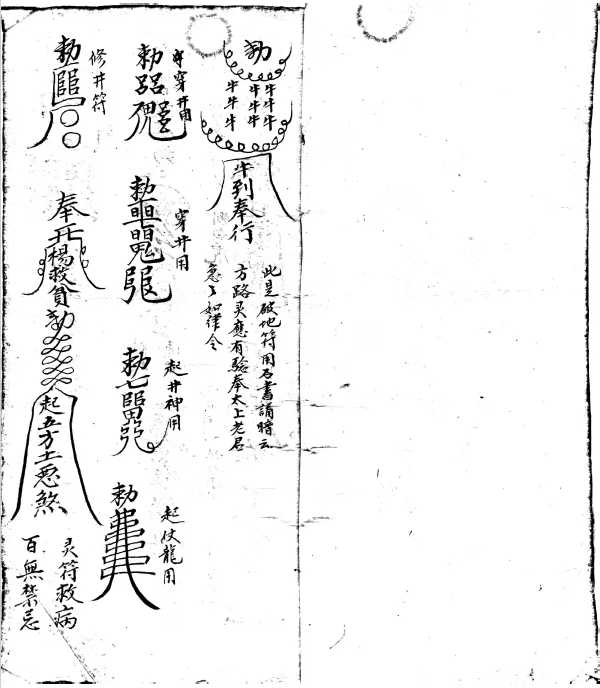 勅
牛 牛 牛
牛 牛 牛
牛 牛 牛
牛列奉行
此是破他符用石書誦暗云
方路灵應有驗奉太上老君
急々如律令
穿井用
勅
穿井用
勅
起井神用
勅
起伏龍用
勅
修井符
勅
奉
楊救貧勅
起五方土惡煞
灵符救病
百無禁忌